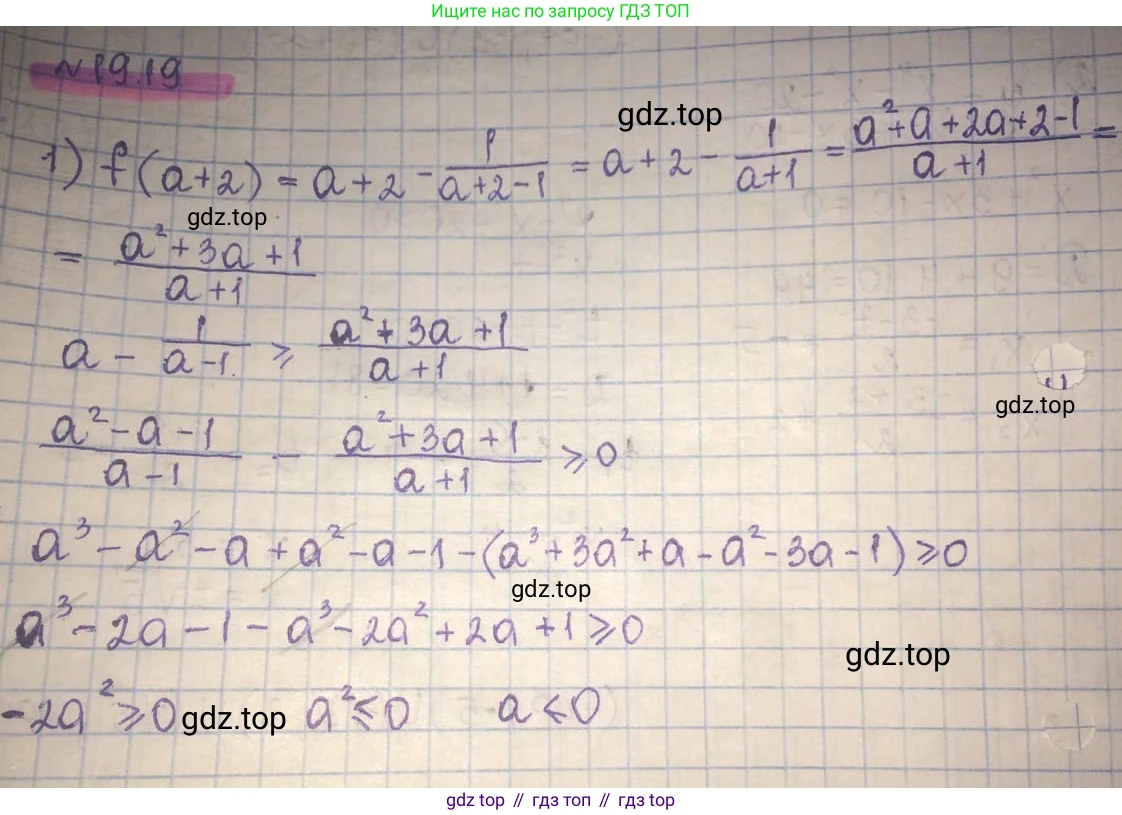 Ищите нас по запросу ГДЗ ТОП
№19.19
gdz.top
1) f(a+2) = a+2 - 1/(a+2-1) = a+2 - 1/(a+1) = (a²+a+2a+2-1)/(a+1) =
gdz.top
= (a²+3a+1)/(a+1)
a - 1/(a-1) ⩾ (a²+3a+1)/(a+1)
gdz.top
(a²-a-1)/(a-1) - (a²+3a+1)/(a+1) ⩾ 0
a³-a²-a+a²-a-1-(a³+3a²+a-a²-3a-1)⩾0
gdz.top
a³-2a-1-a³-2a²+2a+1⩾0
gdz.top
-2a²⩾0 gdz.top a²⩽0 a<0
gdz top // гдз топ // gdz top